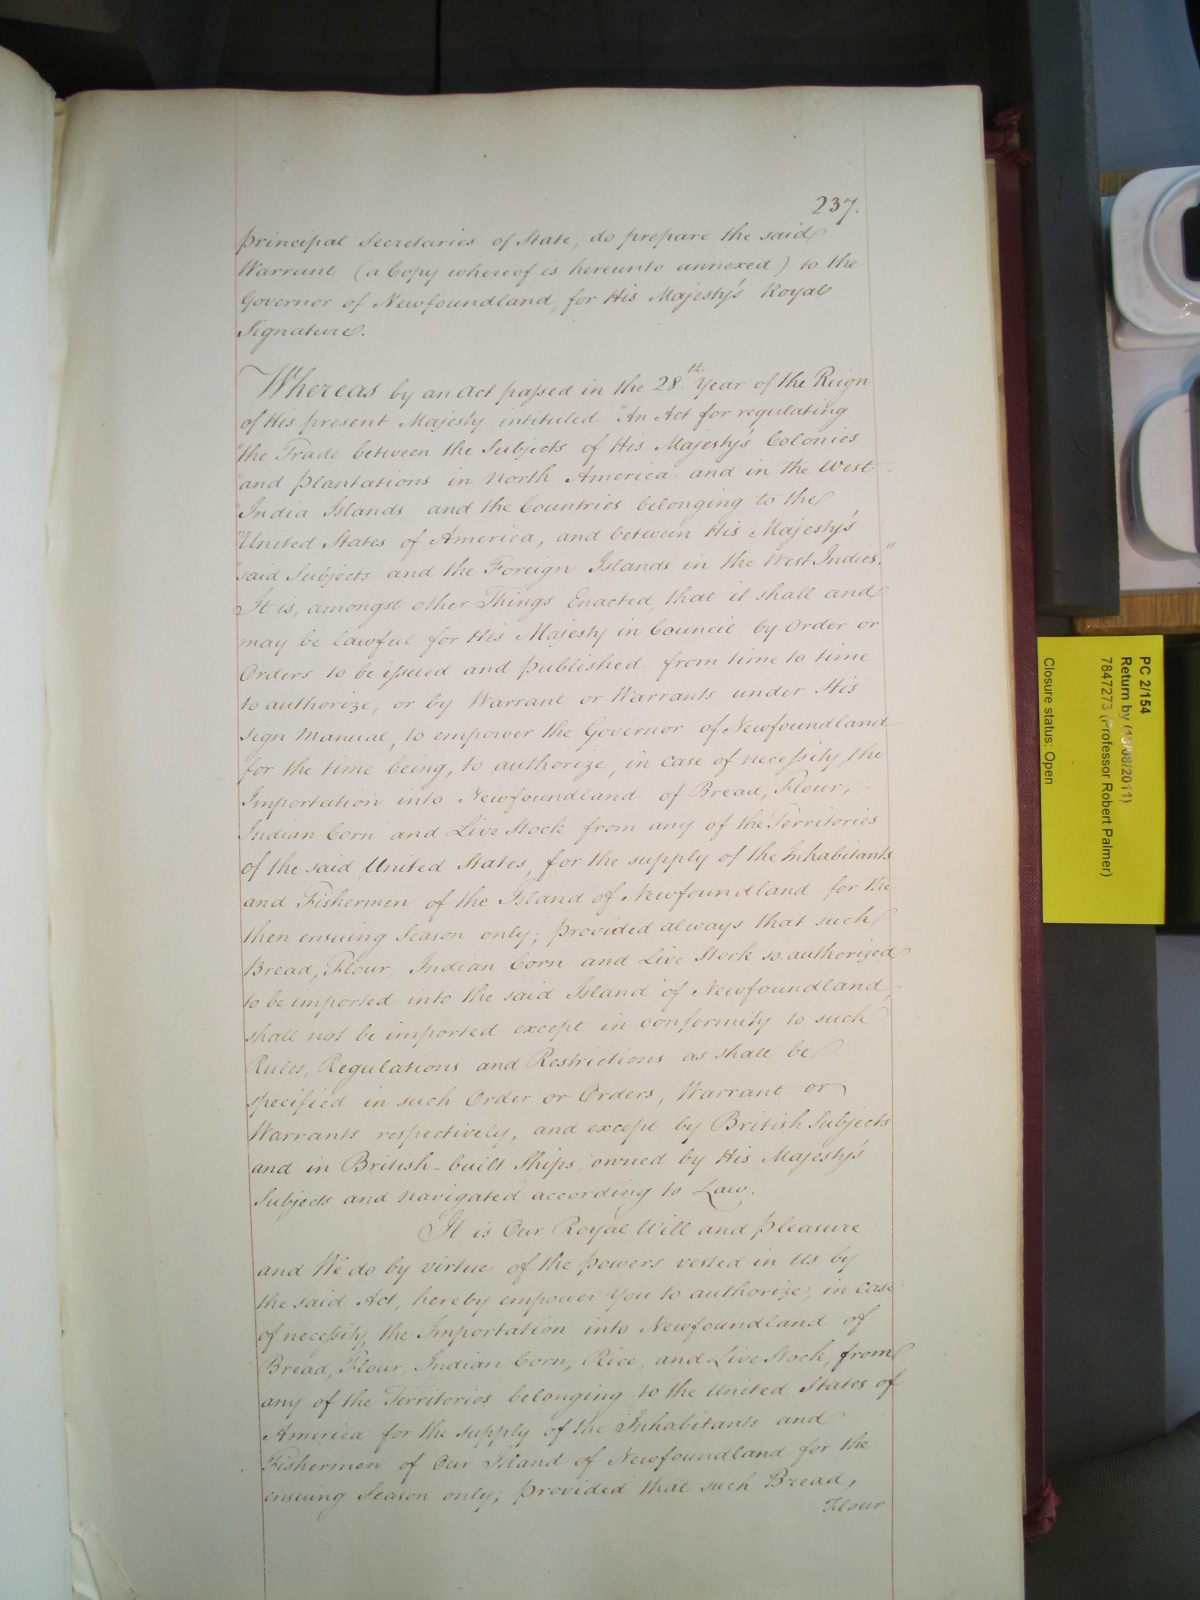 237.
principal Secretaries of State, do prepare the said
Warrant (a Copy whereof is hereunto annexed) to the
Governor of Newfoundland, for His Majesty's Royal
Signature.
Whereas by an Act passed in the 28.th Year of the Reign
of His present Majesty intituled "An Act for regulating
"the Trade between the Subjects of His Majesty's Colonies
"and Plantations in North America and in the West
"India Islands and the Countries belonging to the
"United States of America, and between His Majesty's
"said Subjects and the Foreign Islands in the West Indies."
It is, amongst other Things Enacted, that it shall and
may be lawful for His Majesty in Council by Order or
Orders to be issued and published from time to time
to authorize, or by Warrant or Warrants under His
sign Manual, to empower the Governor of Newfoundland
for the time being, to authorize, in case of necessity, the
Importation into Newfoundland of Bread, Flour,
Indian Corn and Live Stock from any of the Territories
of the said United States, for the supply of the Inhabitants
and Fishermen of the Island of Newfoundland for the
then ensuing Season only; provided always that such
Bread, Flour, Indian Corn and Live Stock so authorized
to be imported into the said Island of Newfoundland,
shall not be imported except in conformity to such
Rules, Regulations and Restrictions as shall be
specified in such Order or Orders, Warrant or
Warrants respectively, and except by British Subjects
and in British-built Ships, owned by His Majesty's
Subjects and navigated according to Law.
It is Our Royal Will and Pleasure
and We do by virtue of the powers vested in Us by
the said Act, hereby empower You to authorize, in case
of necessity, the Importation into Newfoundland of
Bread, Flour, Indian Corn, Rice, and Live Stock, from
any of the Territories belonging to the United States of
America for the supply of the Inhabitants and
Fishermen of Our Island of Newfoundland for the
ensuing Season only; provided that such Bread,
Flour
PC 2/154
Return by (13/08/2011)
7847273 (Professor Robert Palmer)
Closure status: Open